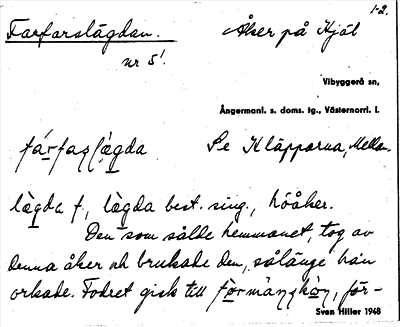 1-2.
Farfarslägdan. Åker på Hjäl
nr 5!
Vibyggerå sn,
Ångermanl. s. doms. tg., Västernorrl. l.
fárfas̩lä̀gda Se Kläpparna, Mella.
lä̀gda f., lä̀gda best. sing., höåker.
Den som sålde hemmanet, tog av
denna åker och brukade den, sålänge han
orkade. Fodret gick till för-
Sven Hiller 1948